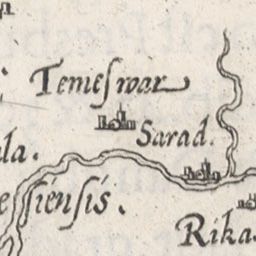 Temeſwar
Sarad.
la.
eſſiénſis.
Rika